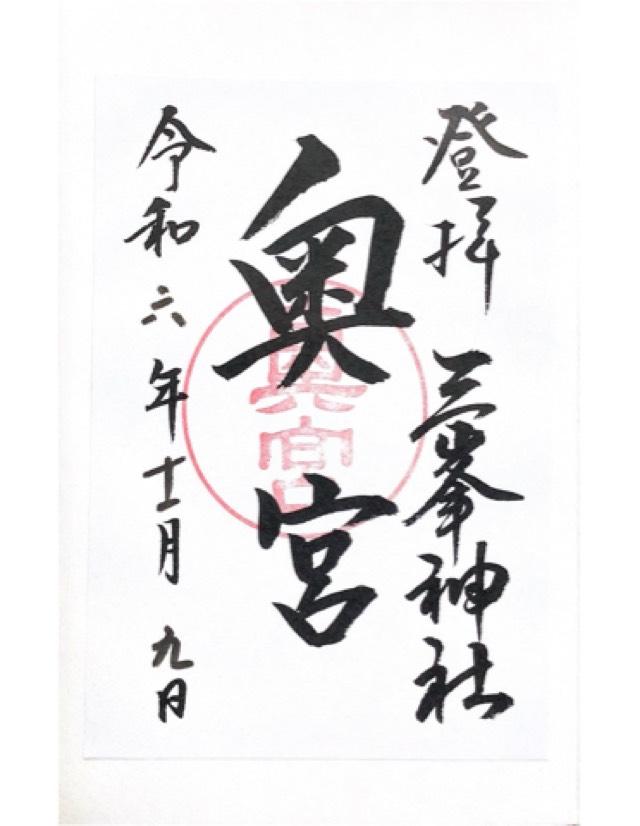 登拝 三峯神社
奥宮
奥宮
令和六年十一月九日